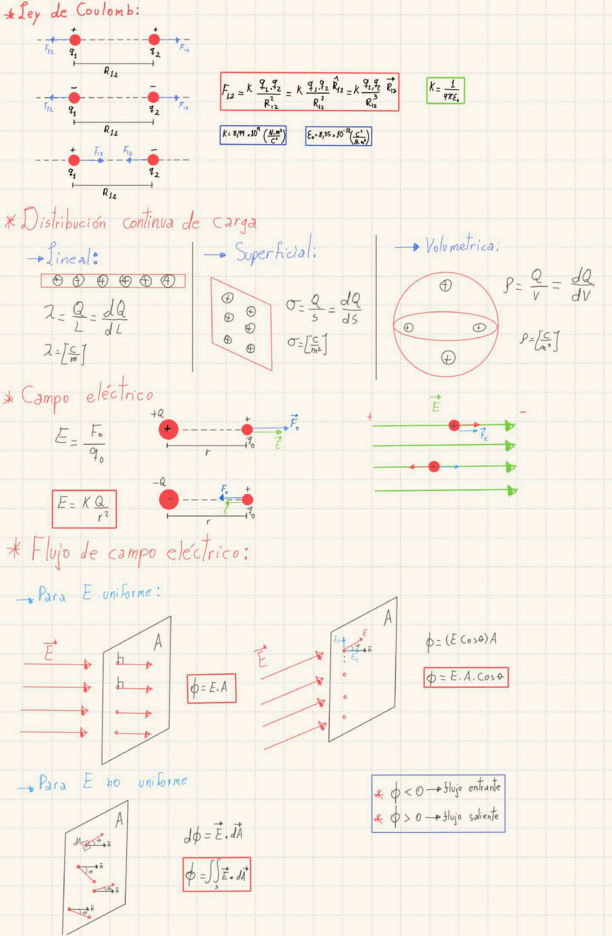 * Ley de Coulomb:
+ +
F₁₂ q₁ q₂ F₁₂
R₁₂
- -
F₁₂ q₁ q₂ F₁₂
R₁₂
+ F₁₂ F₁₂ -
q₁ q₂
R₁₂
F₁₂ = K q₁.q₂/R₁₂² = K q₁.q₂/R₁₂² R̂₁₂ = K q₁.q₂/R₁₂³ R⃗₁₂
K = 1/4πε₀
K = 8,99 × 10⁹ (N.m²/C²)
ε₀ = 8,85 × 10⁻¹² (C²/N.m²)
* Distribución continua de carga
→ Lineal:
+ + + + + +
λ = Q/L = dQ/dL
λ = [C/m]
→ Superficial:
+ + + + + +
σ = Q/S = dQ/dS
σ = [C/m²]
→ Volumetrica:
+ + + +
ρ = Q/V = dQ/dV
ρ = [C/m³]
* Campo eléctrico
E = F₀/q₀
+Q + F⃗₀
+ q₀ E⃗
r
E⃗
+ -
+ F⃗ₑ
-
E = K Q/r²
-Q F₀ +
- E q₀
r
* Flujo de campo eléctrico:
→ Para E uniforme:
E⃗ A
ϕ = E.A
E⃗ A
E n⃗
ϕ = (E Cosθ) A
ϕ = E.A.Cosθ
→ Para E no uniforme
A
dA θ n⃗
θ n⃗
θ n⃗
θ n⃗
dϕ = E⃗ . dA⃗
ϕ = ∬ₛ E⃗ . dA⃗
* ϕ < 0 → flujo entrante
* ϕ > 0 → flujo saliente